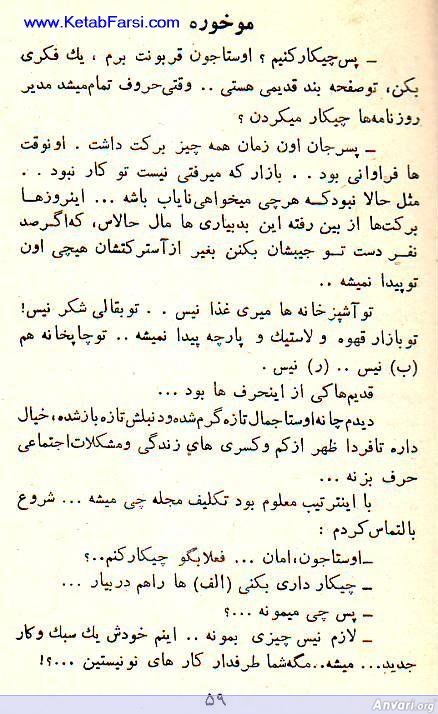 www.KetabFarsi.com
موخوره
ـ پس‌چیکارکنیم ؟ اوستاجون قربونت برم ، یك فکری
بکن، توصفحه بند قدیمی هستی .. وقتی‌حروف تمام‌میشد مدیر
روزنامه‌ها چیکار میکردن ؟
ـ پسرجان اون زمان همه چیز برکت داشت . اونوقت
ها فراوانی بود . . بازار که میرفتی نیست تو کار نبود . .
مثل حالا نبودکـه هرچی میخواهی‌نایاب باشه ... اینروزهـا
برکت‌ها از بین رفته این بدبیاری ها مال حالاس، که‌اگرصد
نفـر دست تـو جیبشان بکنن بغیر ازآسترکتشان هیچی اون
توپیدا نمیشه ..
تو آشپزخانه ها میری غذا نیس . . توبقالی شکر نیس!
توبازار قهوه و لاستیك و پارچه پیدا نمیشه .. توچاپخانه هم
(ب) نیس .. (ر) نیس .
قدیم‌هاکی از اینحرف ها بود ...
دیدم‌چانه‌اوستاجمال‌تازه‌گرم‌شده‌ودنبلش‌تازه‌بازشده، خیال
داره تافردا ظهر ازکم وکسری های زندگی ومشکلات‌اجتماعی
حرف بزنه ...
با اینترتیب معلوم بود تکلیف مجله چی میشه ... شروع
بالتماس‌کردم :
ـ اوستاجون،امان ... فعلابگو چیکارکنم..؟
ـ چیکار داری بکنی (الف) ها راهم دربیار ...
ـ پس چی میمونه ...؟
ـ لازم نیس چیزی بمونه .. اینم خودش یك سبك وکار
جدید... میشه..مگه‌شما طرفدار کار های نونیستین ...؟!
۵۹
Anvari.org